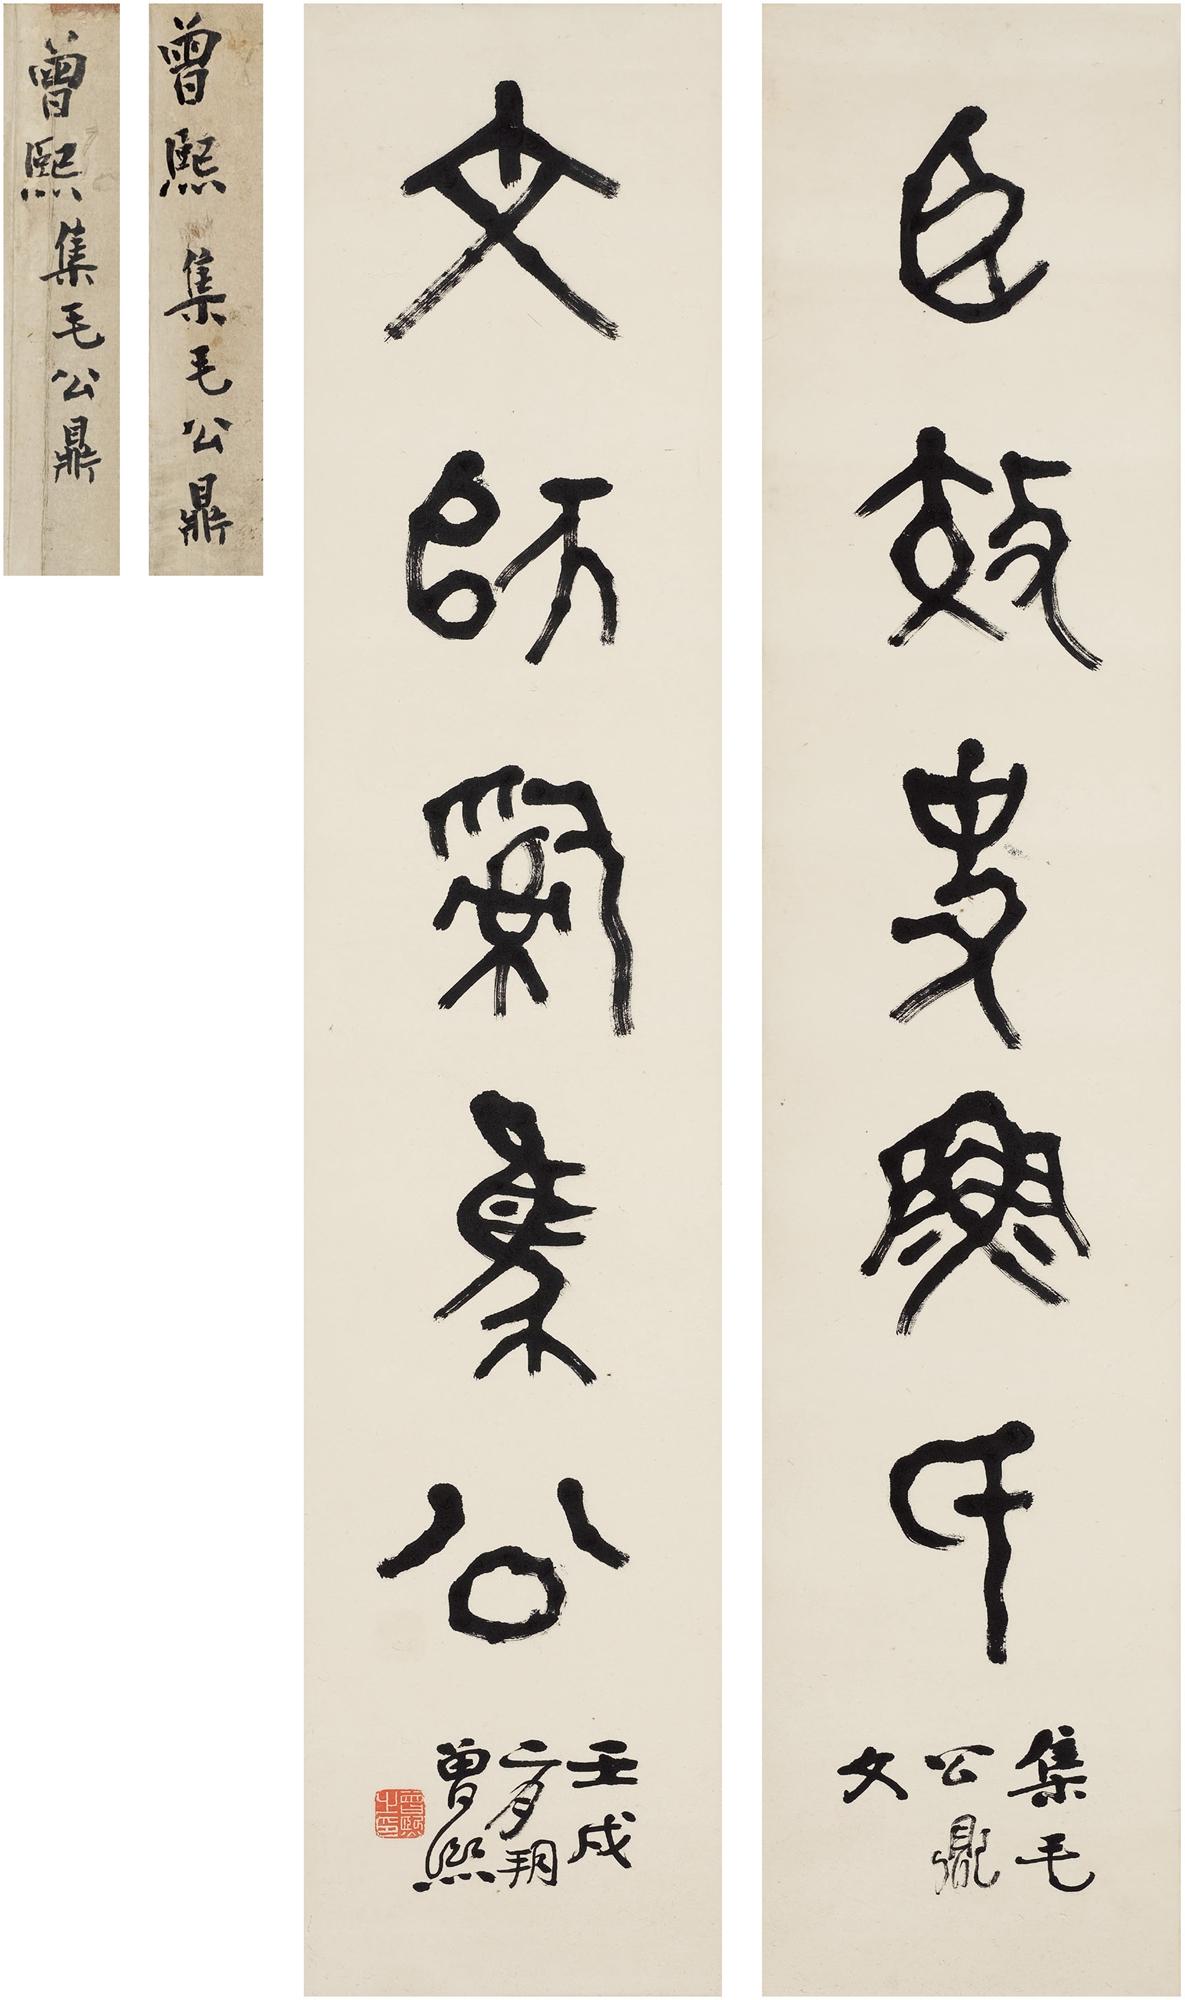 臣效史氏
集毛
公鼎
文
文師集公
壬戌
二月朔
曾熙
曾熙之印
曾熙集毛公鼎
曾熙集毛公鼎